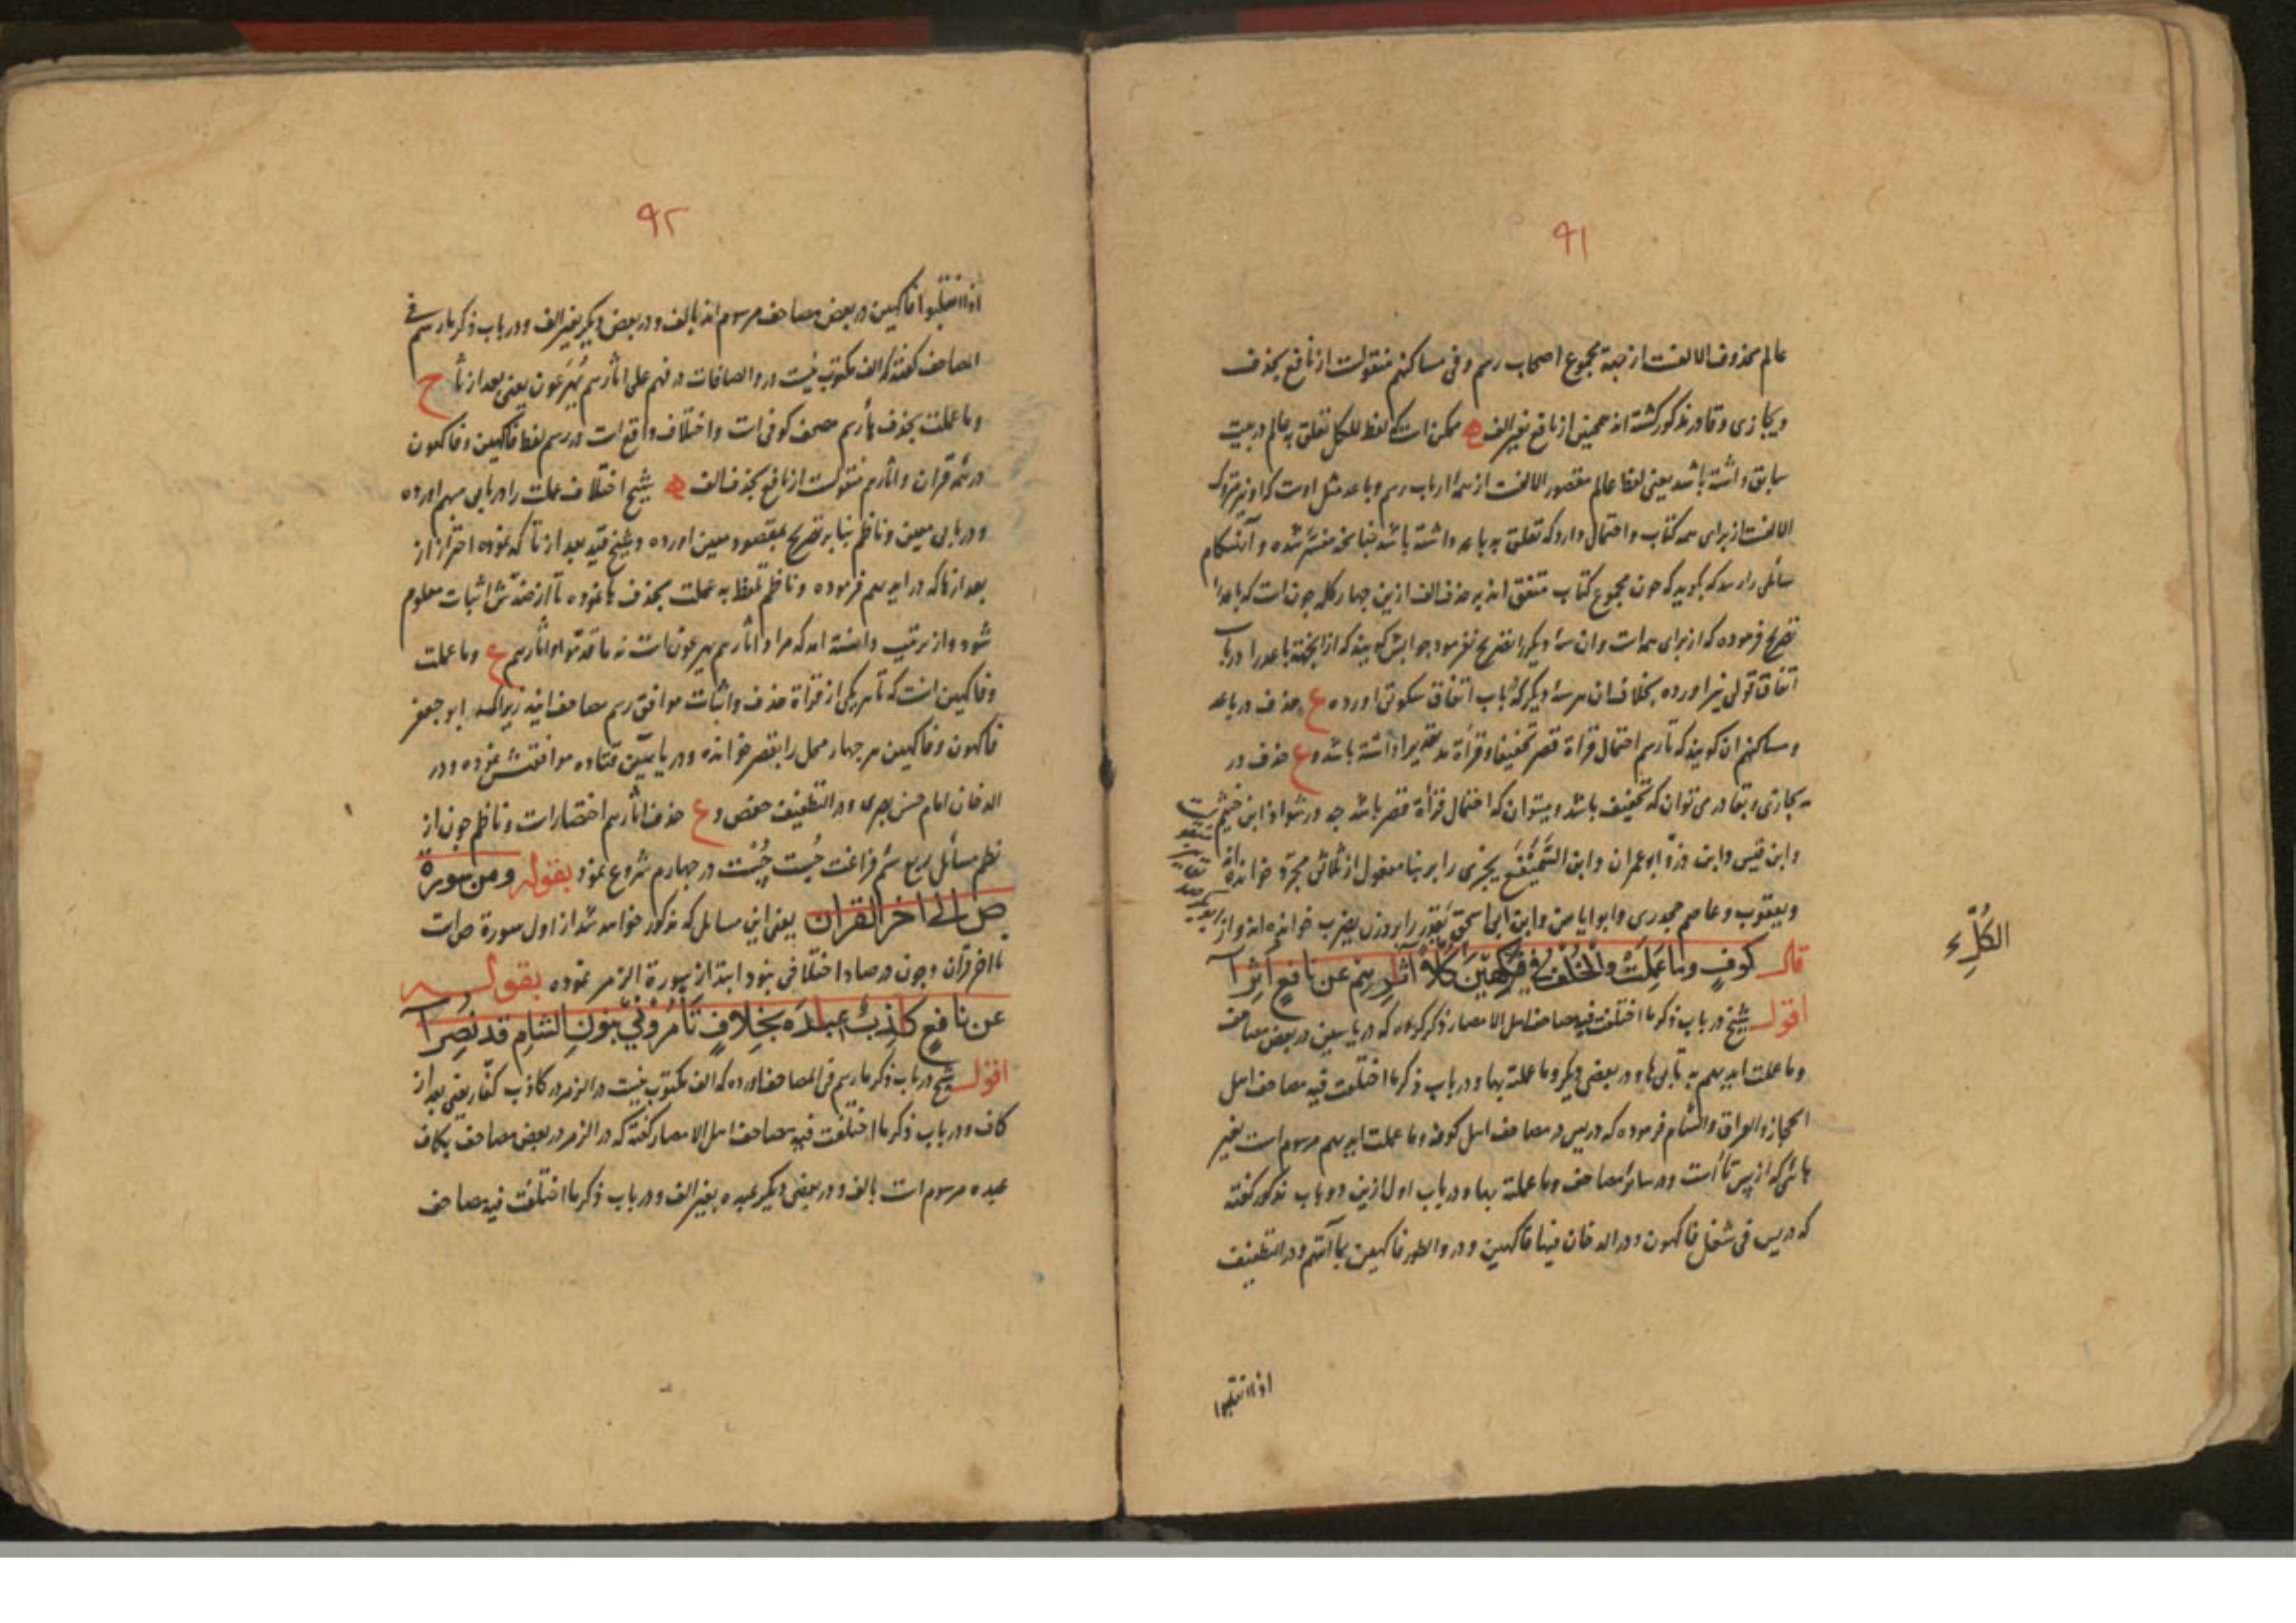 ۹۱
عالم محذوف الالفست از جهة مجموع اصحاب رسم و فی مساکنهم منقولست از نافع بحذف
ویجازی وقادر مذکور کشته اند همچنین از نافع بغیر الف ممکن است که لفظ للکل تعلق به عالم در بیت
سابق داشته باشد یعنی لفظ عالم مقصور الالفست از همهٔ ارباب رسم و باعد مثل اوست که او نیز متروک
الالفست از برای همه کتاب و احتمال دارد که تعلق به باعد داشته باشد چنانچه مفسّر شده و آنهنکام
سائلی را رسد که بکوید که چون مجموع کتاب متفق اند به حذف الف ازین چهار کلمه چون است که باعد را
تصریح فرموده که از برای همه است وان سهٔ دیکر را تصریح نفرمود جوابش کویند که از انجهته باعد را در باب
اتفاق قولی نیز اورده بخلاف ان هر سهٔ دیکر که باب اتفاق سکوتی اورده ع حذف در باعد
و مساکنهم ان کویند که تا رسم احتمال قراة قصر تحقیقا و قراة مد تقدیرا داشته باشد و ع حذف در
یجازی و بقادر می توان که تخفیف باشد و میتوان که احتمال قراة قصر باشد چه در شواذ ابن خیثم
وابن قیس وابن وزو ابو عمران وابن السمیفع یجزی را بر بنا مفعول از ثلاثی مجرد خوانده اند
ویعقوب وعاصم جحدری وابو ایاس وابن ابی اسحق یقدر را بر وزن یضرب خوانده اند
قال کوفٍ وما عَمِلَتْ والخُلْفُ فی فَکِهِینَ کلاً آثارِهِم عن نافعٍ اُثِرا
اقول شیخ در باب ذکر ما اختلفت فیه مصاحف اهل الامصار ذکر کرده که در یاسین در بعض مصاحف
وما عملت ایدیهم به تا بی ها و در بعضی دیکر وما عملته بها و در باب ذکر ما اختلفت فیه مصاحف اهل
الحجاز والعراق والشام فرموده که در یس در مصاحف اهل کوفه وما عملت ایدیهم مرسوم است بغیر
هائی که از پس تا است و در سائر مصاحف وما عملته بها و در باب اول ازین دو باب مذکور کفته
که در یس فی شغل فاکهون و در الدخان فیها فاکهین و در والطور فاکهین بما آتیهم و در التطفیف
الکُلِّ ء
اذا انقلبوا
۹۲
اذا انقلبوا فاکهین در بعض مصاحف مرسوم اند بالف و در بعض دیکر بغیر الف و در باب ذکر ما رسم فی
المصاحف کفته که الف مکتوب نیست در والصافات در فهم علی اثارهم یُهرَعون یعنی بعد از ثا ح
وما عملت بحذف ها رسم مصحف کوفی است و اختلاف واقع است در رسم لفظ فاکهین و فاکهون
در همه قران و اثارهم منقولست از نافع بحذف الف شیخ اختلاف عملت را در بابی مبهم اورده
و در بابی معین و ناظم بنا بر تصریح بمقصود معین اورده و شیخ قید بعد از ثا که نموده احتراز از
بعد از ها که در ایدیهم فرموده و ناظم تلفظ به عملت بحذف ها نموده تا از ضدّش اثبات معلوم
شود و از ترتیب دانسته اند که مراد اثارهم یهرعون است نه ما قدّموا واثارهم ع وما عملت
وفاکهین انست که تا هر یکی از قراة حذف و اثبات موافق رسم مصاحف افتد زیرا که ابو جعفر
فاکهون و فاکهین هر چهار محل را بقصر خوانده و در یاسین قتاده موافقتش نموده و در
الدخان امام حسن بصری و در التطفیف حفص و ع حذف اثارهم اختصار است و ناظم چون از
نظم مسائل ربع سیُم فراغت جُست چُست در چهارم شروع نمود بقوله ومن سورة
ص الی اخر القران یعنی این مسائل که مذکور خواهد شد از اول سورة ص است
تا اخر قرآن و چون در صاد اختلافی نبود ابتدا از سورة الزمر نموده بقوله
عن نافعٍ کاذِبٌ عباده بخِلافٍ تأمُرونّی بنونِ الشامِ قد نُصِرا
اقول شیخ در باب ذکر ما رسم فی المصاحف اورده که الف مکتوب نیست در الزمر در کاذب کفّار یعنی بعد از
کاف و در باب ذکر ما اختلفت فیه مصاحف اهل الامصار کفته که در الزمر در بعض مصاحف بکاف
عبده مرسوم است بالف و در بعضی دیکر عبده بغیر الف و در باب ذکر ما اختلفت فیه مصاحف